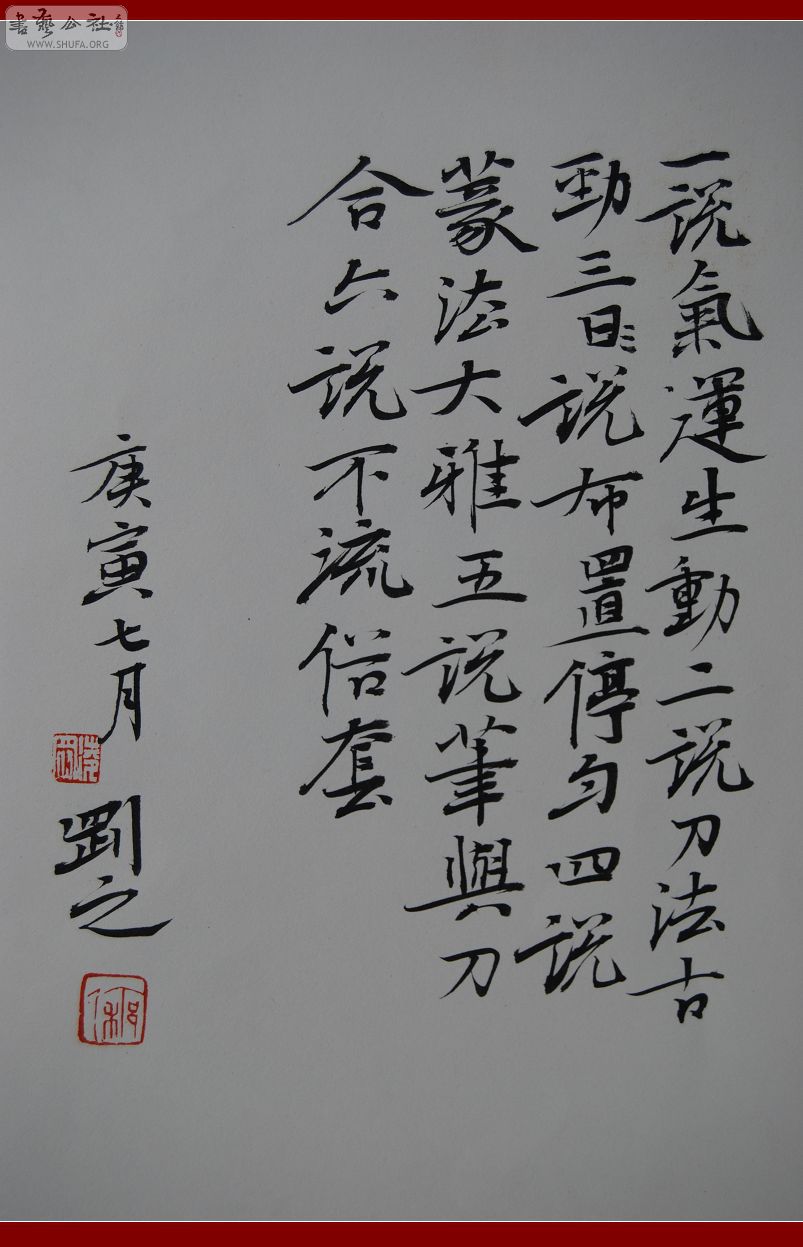 書藝公社
WWW.SHUFA.ORG
一说氣運生動二说刀法古
勁三曰説布置停匀四说
篆法大雅五说筆與刀
合六说不流俗套
庚寅七月
劉之